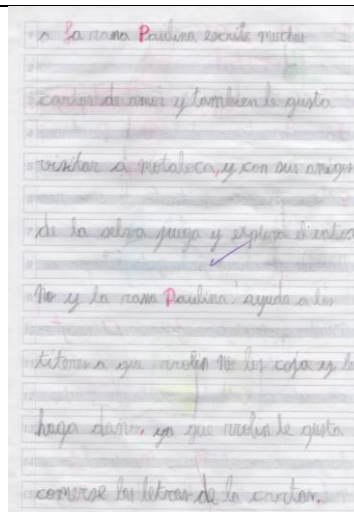 La rana Paulina escribe muchas
cartas de amor y tambien le gusta
visitar a notaloca, y con sus amigos
de la selva juega y explora el entor
no y la rana Paulina ayuda a los
titeres a que no les coja y
haga daño. ya que le gusta
comerse las letras de la cartas.